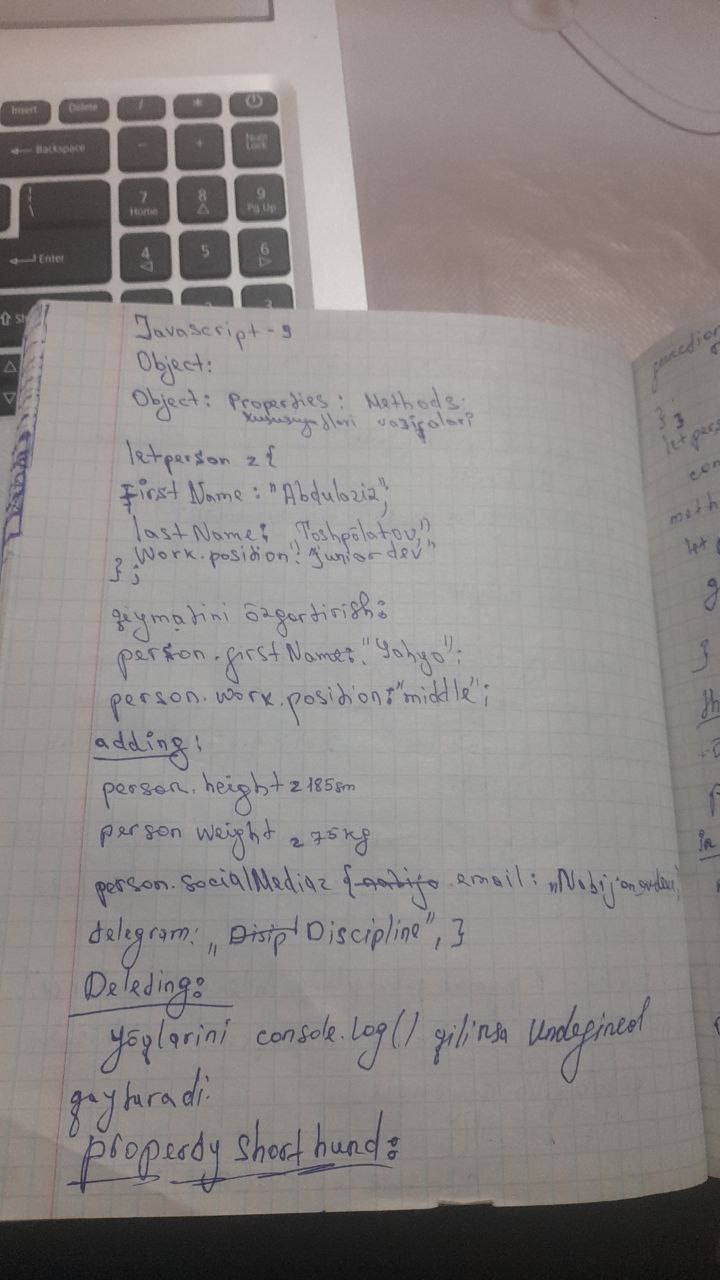 Insert Delete / *
Backspace - + Num Lock
| \ 7 Home 8 9 Pg Up
Enter 4 5 6
Javascript - 9
Object:
Object: Properties: Methods:
xususiyatlari vazifalari
let person = {
first Name: "Abdulaziz",
last Name: Toshpōlatov"
Work.position: "junior dev"
};
qiymatini ōzgartirish:
person.firstName: "Yahyo";
person.work.position: "middle";
adding:
person. height = 185sm
person weight = 75kg
person.socialMedia = { email:
telegram: „ Discipline", }
Deleding:
yōqlarini console.log() qilinsa Undefined
qaytaradi.
property short hund:
function
} }
let pers
con
meth
let
g
}